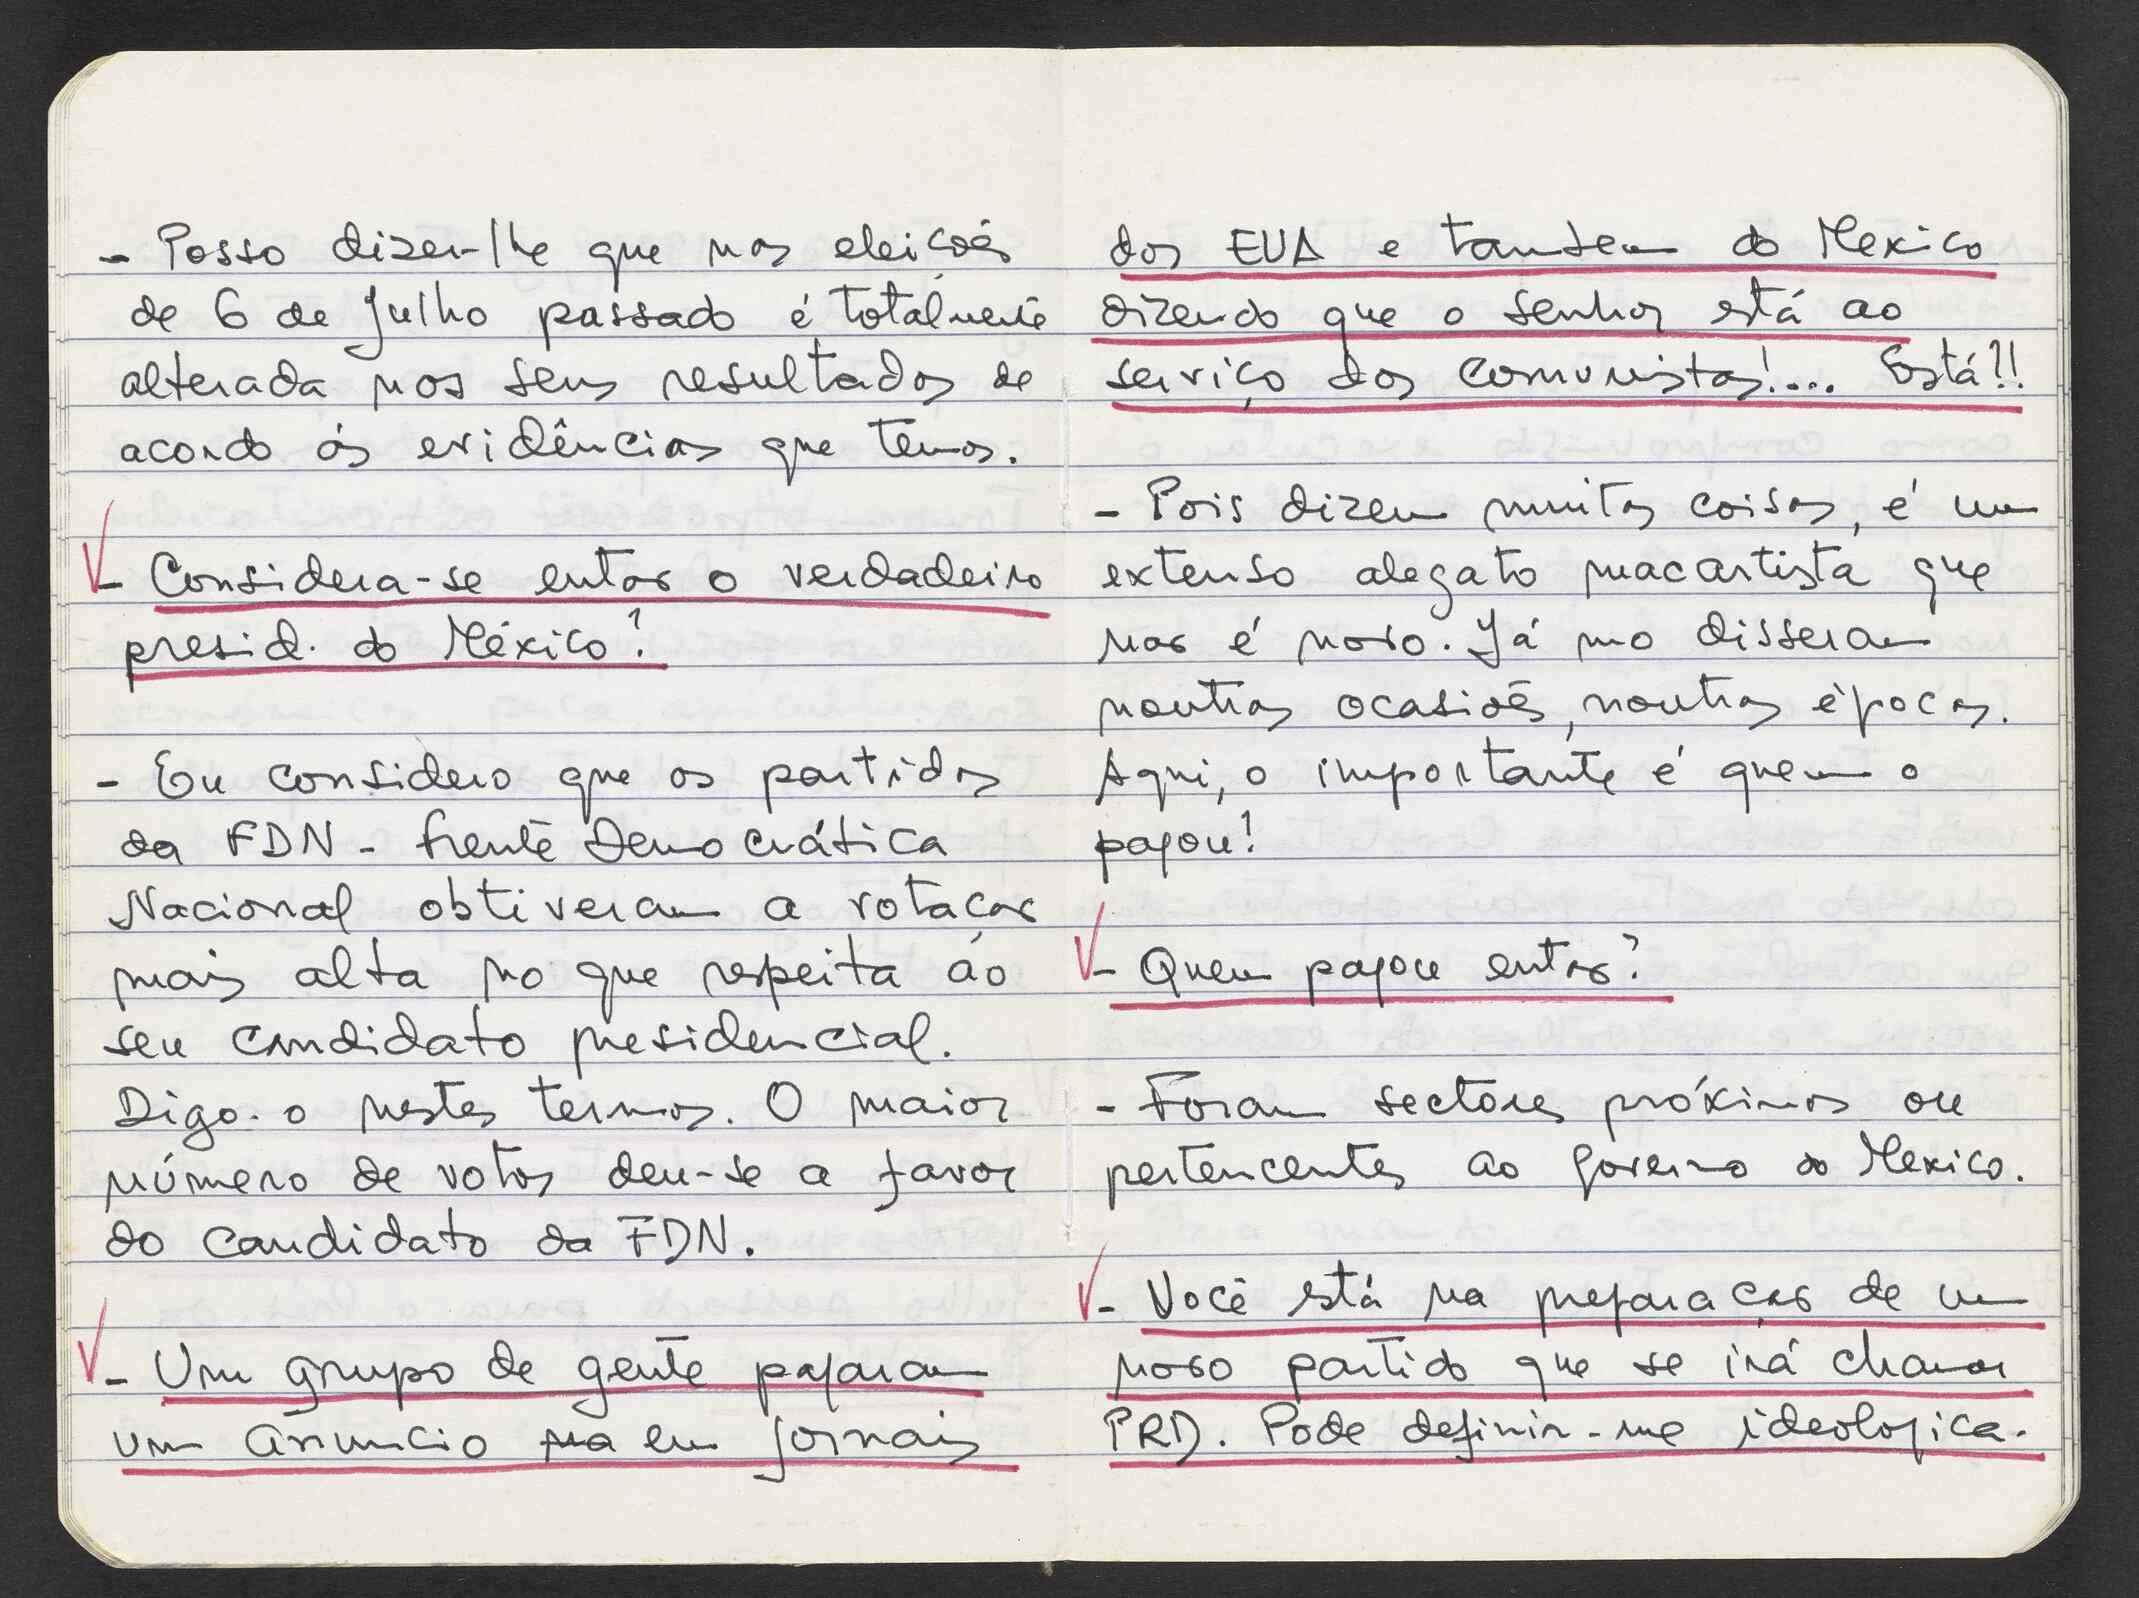 - Posso dizer-lhe que nas eleições
de 6 de Julho passado é totalmente
alterada nos seus resultados de
acordo ás evidências que temos.
- Considera-se entao o verdadeiro
presid. do México?
- Eu considero que os partidos
da FDN - frente Democrática
Nacional obtiveram a votaçao
mais alta no que respeita ao
seu candidato presidencial.
Digo-o nestes termos. O maior
número de votos deu-se a favor
do candidato da FDN.
- Um grupo de gente pagaram
um anuncio na em jornais
dos EUA e tambem do Mexico
dizendo que o senhor está ao
serviço dos comunistas!... Está?!
- Pois dizem muitas coisas, é um
extenso alegato macartista que
nao é novo. Já mo disseram
noutras ocasiões, noutras épocas.
Aqui, o importante é quem o
pagou!
- Quem pagou entao?
- Foram sectores próximos ou
pertencentes ao governo do Mexico.
- Você está na preparaçao de um
novo partido que se irá chamar
PRD. Pode definir-me ideologica-